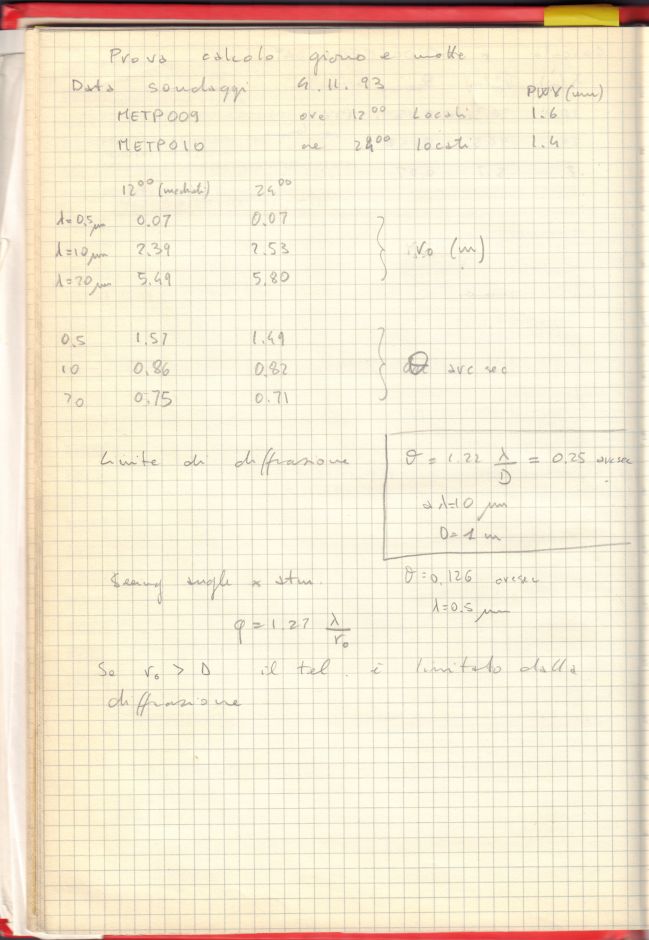 Prova calcolo giorno e notte
Data sondaggi 4.11.93 PWV (mm)
METP009 ore 12⁰⁰ Locali 1.6
METP010 ore 24⁰⁰ locali 1.4
12⁰⁰ 24⁰⁰
λ=0,5 μm 0.07 0.07
λ=10 μm 2.39 2.53 r₀ (m)
λ=20 μm 5.49 5,80
0,5 1,57 1.49
10 0,86 0,82 θ arc sec
20 0.75 0.71
Limite di diffrazione θ = 1.22 λ/D = 0,25 arcsec
a λ=10 μm
D=1 m
Seeing angle x atm. θ=0,126 arcsec
λ=0.5 μm
φ=1.27 λ/r₀
Se r₀ > D il tel. è limitato dalla
diffrazione